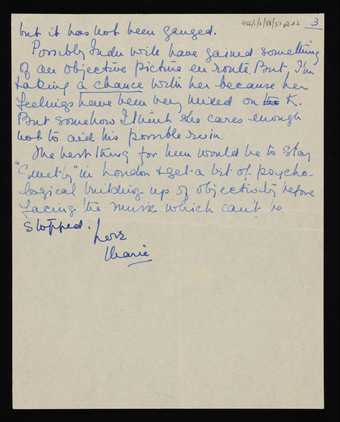 3
but it has not been gauged.
Possibly Indu will have gained something
of an objective picture en route But, I'm
taking a chance with her because her
feelings have been very mixed on K.
But somehow I think she cares enough
not to aid his possible ruin.
The best thing for him would be to stay
"quietly" in London & get a bit of psycho-
logical building up of objectivity before
facing the music which can't be
stopped.
Love
Marie